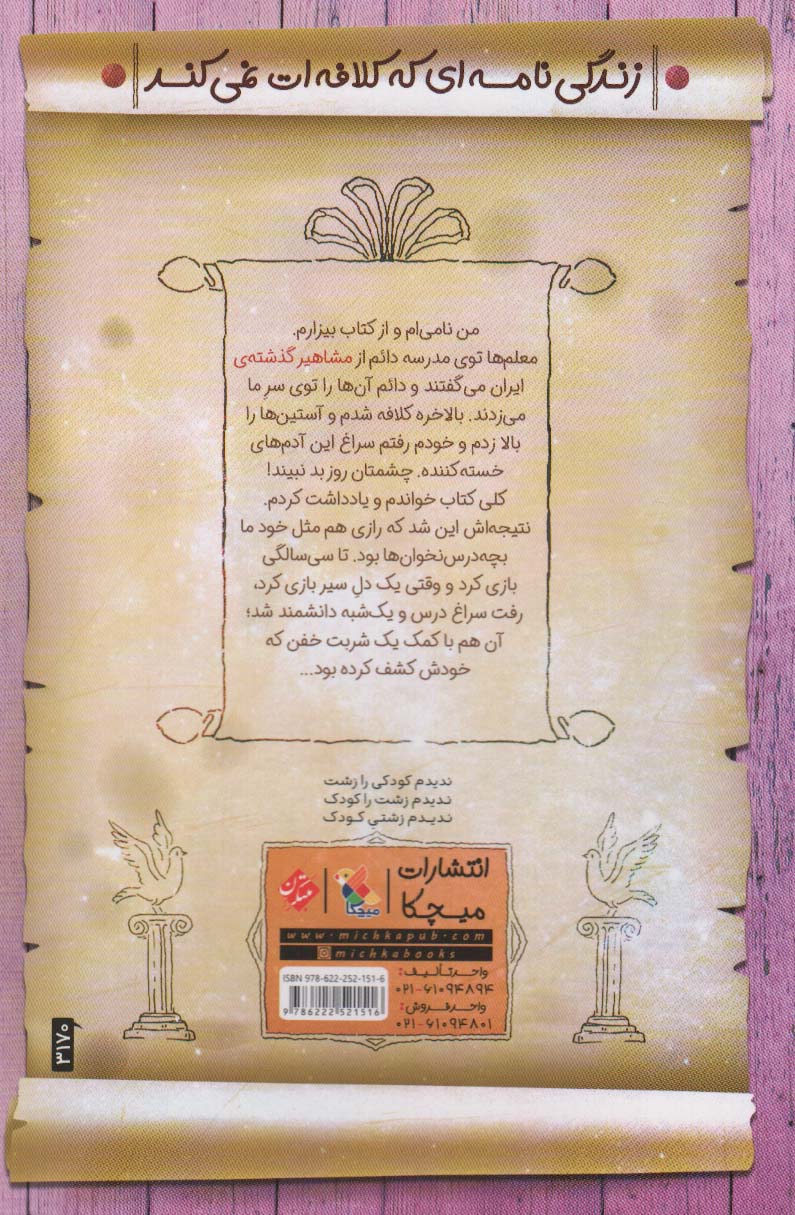 زندگی‌نامه‌ای که کلافه‌ات نمی‌کند
من نامی‌ام و از کتاب بیزارم.
معلم‌ها توی مدرسه دائم از مشاهیر گذشته‌ی
ایران می‌گفتند و دائم آن‌ها را توی سرِ ما
می‌زدند. بالاخره کلافه شدم و آستین‌ها را
بالا زدم و خودم رفتم سراغ این آدم‌های
خسته‌کننده. چشمتان روز بد نبیند!
کلی کتاب خواندم و یادداشت کردم.
نتیجه‌اش این شد که رازی هم مثل خود ما
بچه‌درس‌نخوان‌ها بود. تا سی‌سالگی
بازی کرد و وقتی یک دلِ سیر بازی کرد،
رفت سراغ درس و یک‌شبه دانشمند شد؛
آن هم با کمک یک شربت خفن که
خودش کشف کرده بود...
ندیدم کودکی را زشت
ندیدم زشت را کودک
ندیدم زشتیِ کودک
انتشارات
میچکا
میچکا
مبتکران
www.michkapub.com
michkabooks
واحد تألیف:
۰۲۱-۶۱۰۹۴۸۹۴
واحد فروش:
۰۲۱-۶۱۰۹۴۸۰۱
ISBN 978-622-252-151-6
9 786222 521516
۳۱۷۰